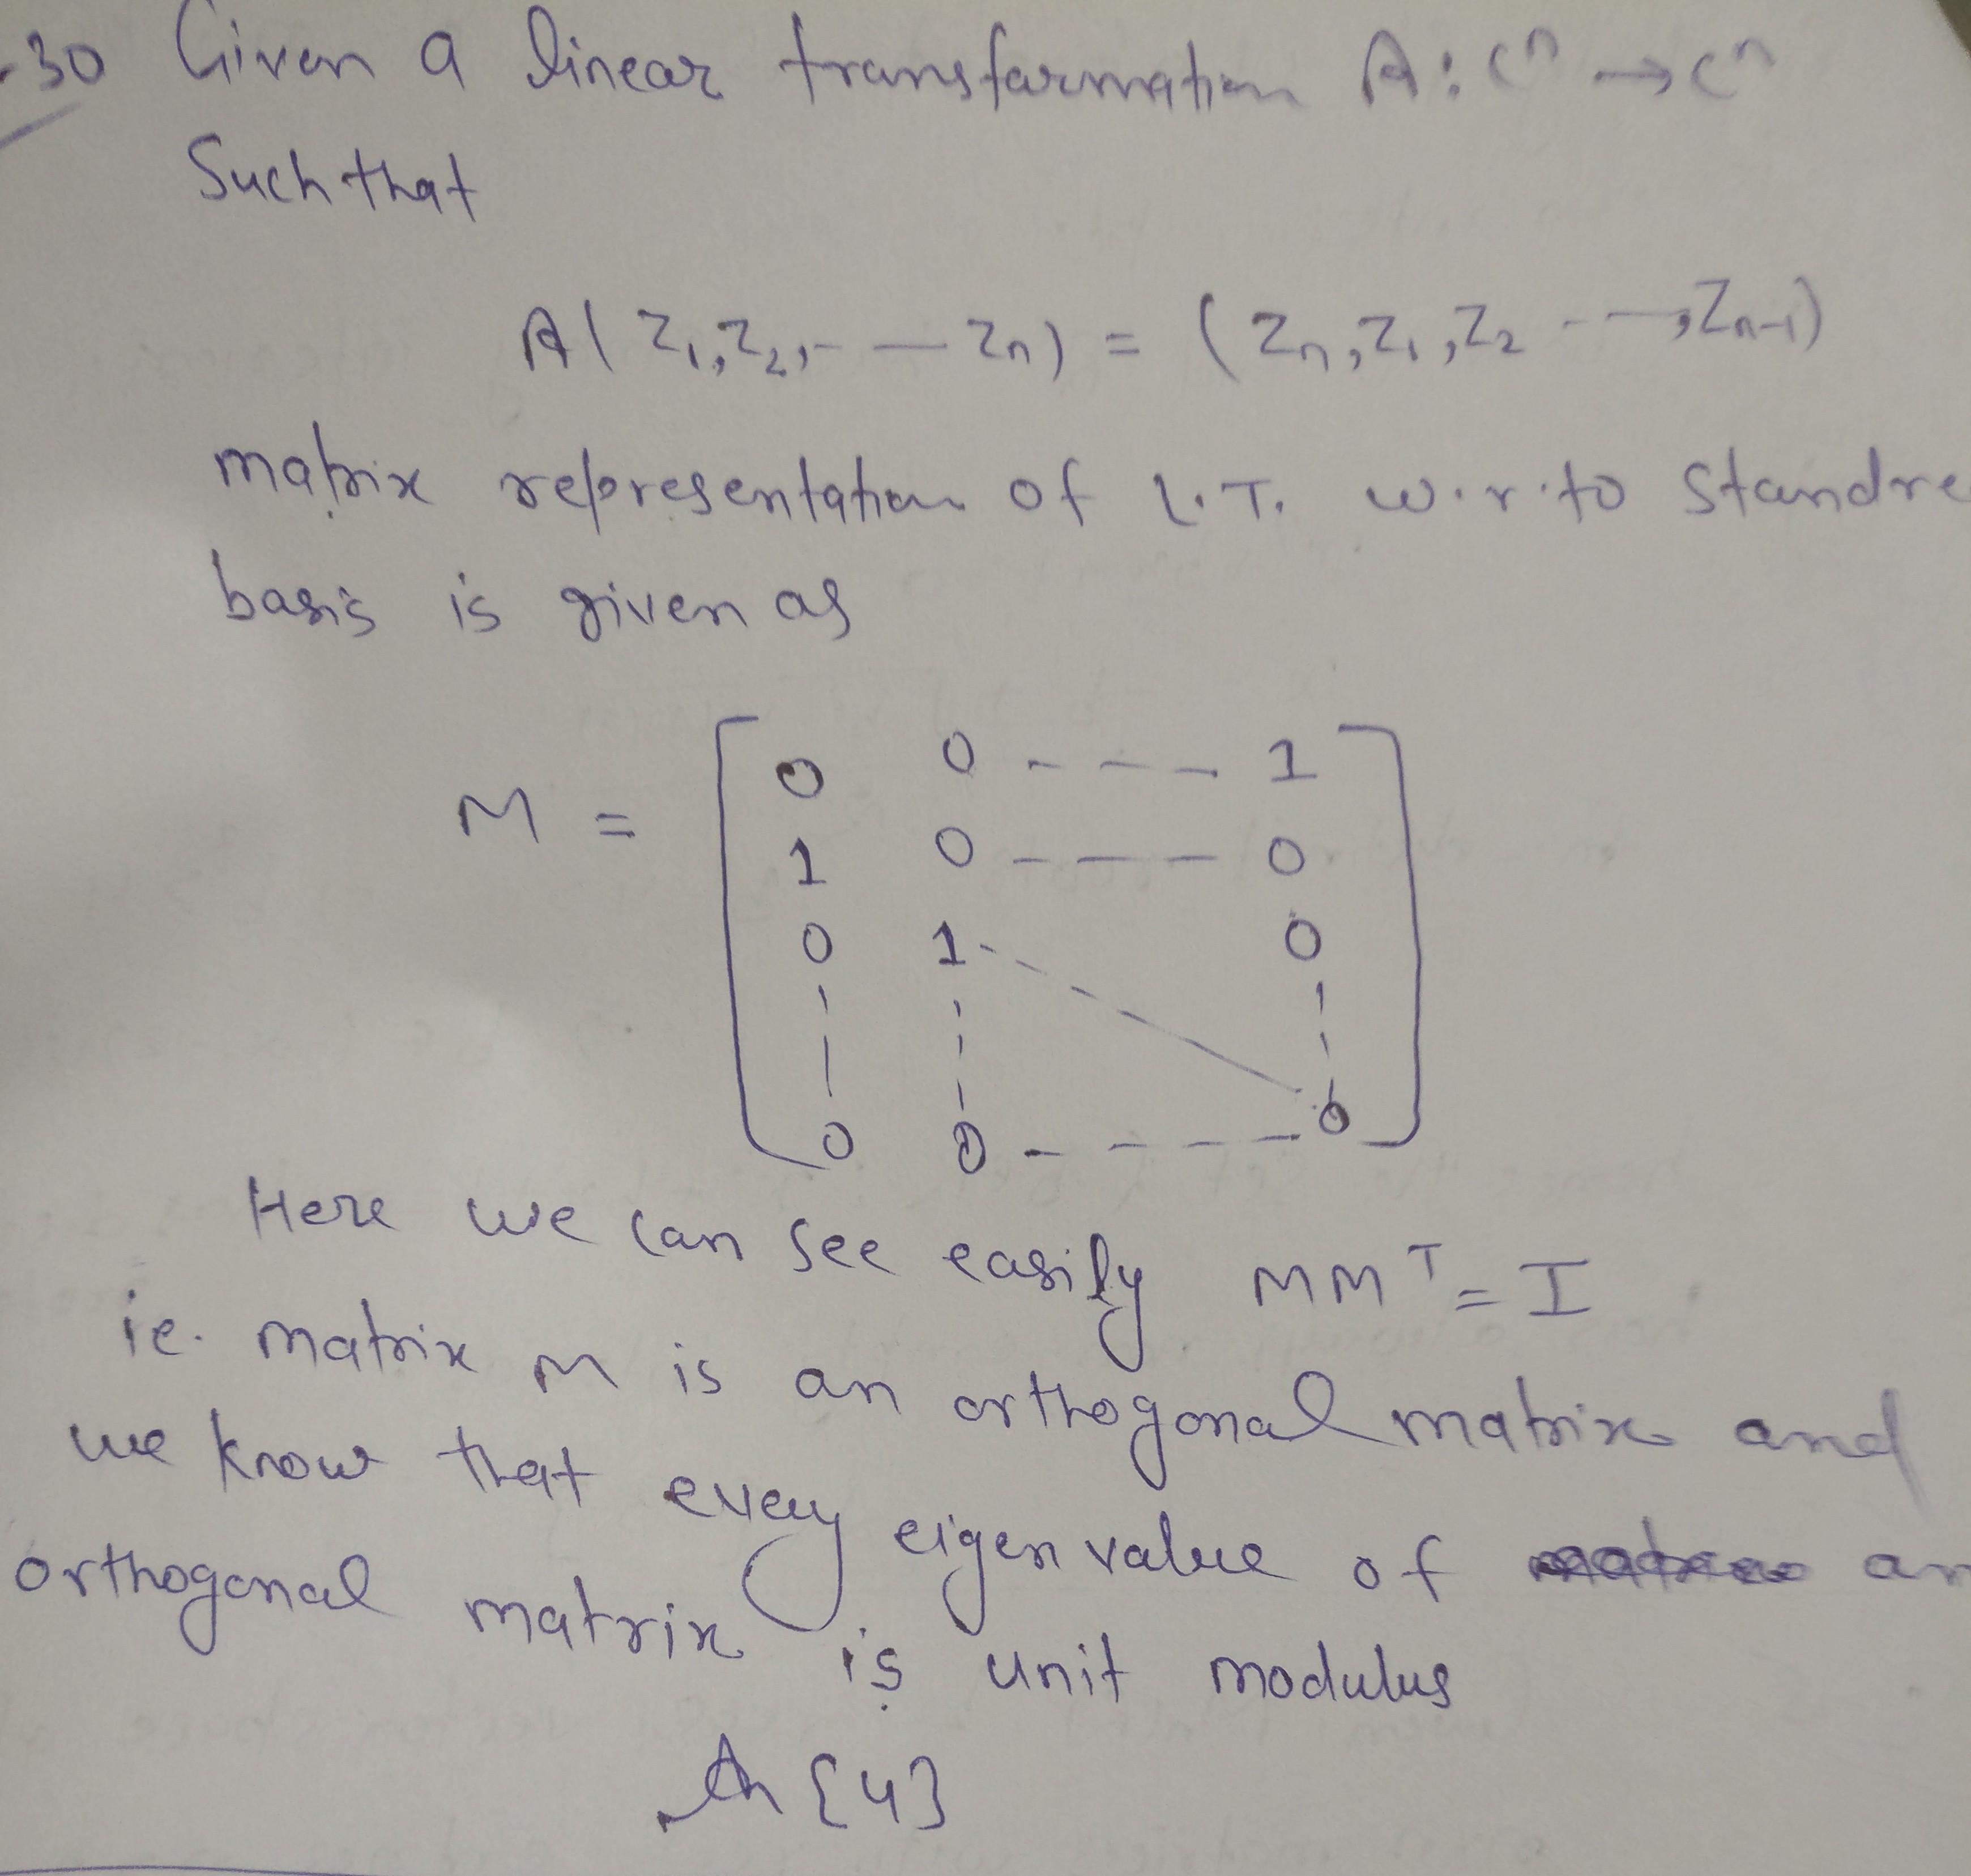 -30 Given a linear transformation A: Cⁿ → Cⁿ
Such that
A( Z₁, Z₂, - — Zn) = ( Zn, Z₁, Z₂ - - —, Zn-1)
matrix representation of L.T. w.r.to Standre
basis is given as
M = [ 0 0 - — - 1
1 0 - — - 0
0 1 - - 0
0 0 - - - - 0 ]
Here we can see easily MMᵀ = I
ie. matrix M is an orthogonal matrix and
we know that every eigen value of an
orthogonal matrix is unit modulus
{4}